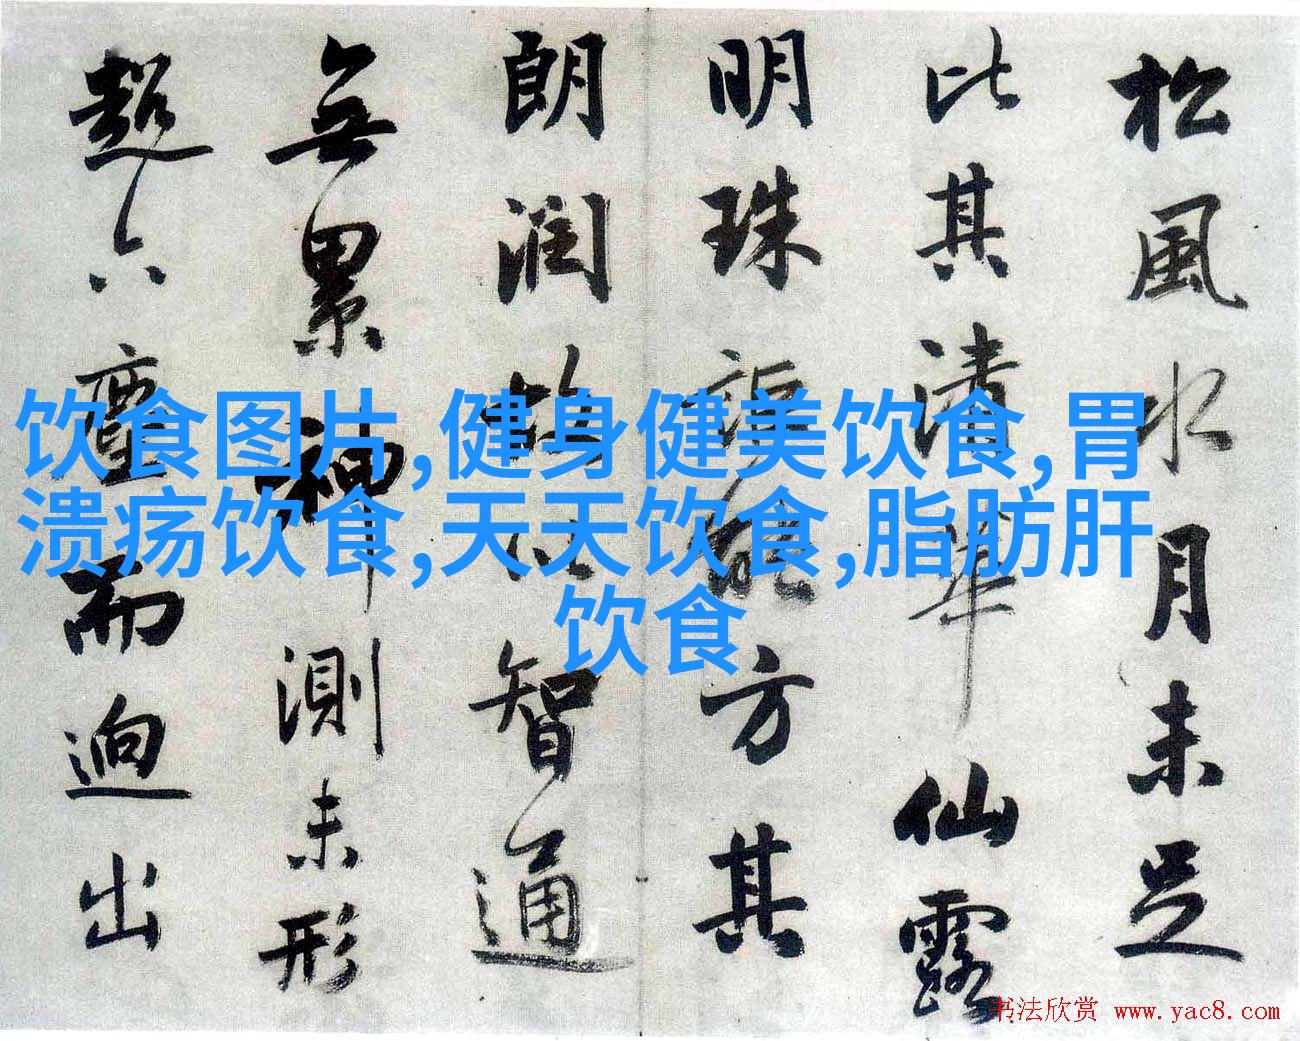 松風水月未足
比其清華仙露
明珠詎能方其
朗潤故以智通
無累神測未形
超六塵而迥出
饮食图片,健身健美饮食,胃
溃疡饮食,天天饮食,脂肪肝
饮食
书法欣赏 www.yac8.com